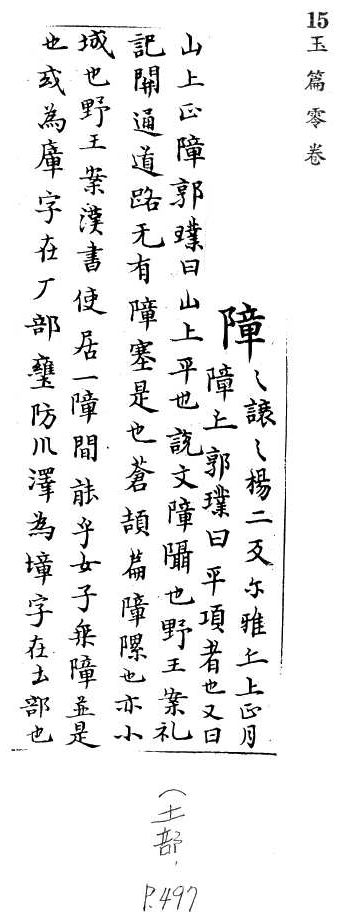 15 玉篇零卷
障
之讓之楊二反尓雅丘上正月
障上郭璞曰平項者也又曰
山上正障郭璞曰山上平也說文障隔也野王案礼
記開通道路无有障塞是也蒼頡篇障也亦小
城也野王案漢書使居一障間能乎女子乗障並是
也或為㢓字在厂部壅防川澤為墇字在土部也
(土部,
P.497